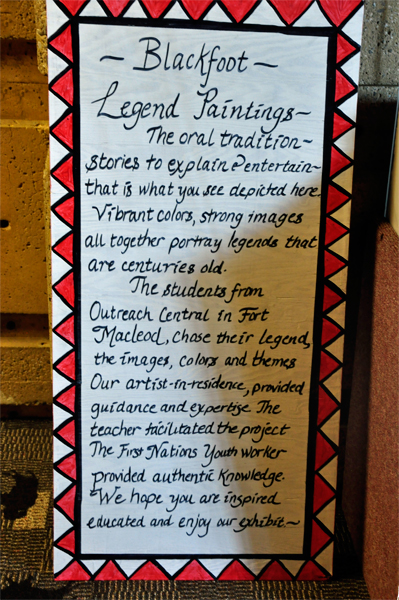 ~ Blackfoot ~
Legend Paintings~
The oral tradition~
stories to explain & entertain~
that is what you see depicted here.
Vibrant colors, strong images
all together portray legends that
are centuries old.
The students from
Outreach Central in Fort
Macleod, chose their legend,
the images, colors and themes
Our artist-in-residence, provided
guidance and expertise. The
teacher facilitated the project
The First Nations Youth Worker
provided authentic knowledge.
We hope you are inspired
educated and enjoy our exhibit.~